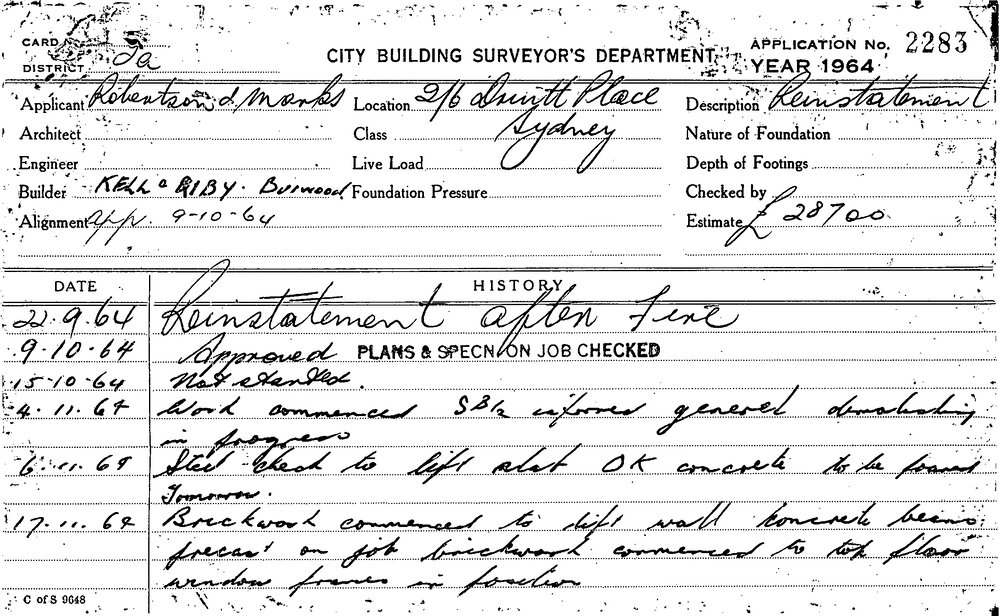 CARD
DISTRICT 2a
CITY BUILDING SURVEYOR'S DEPARTMENT
APPLICATION No. 2283
YEAR 1964
Applicant Robertson & Marks Location 2/6 Druitt Place Description Reinstatement
Architect Class Sydney Nature of Foundation
Engineer Live Load Depth of Footings
Builder KELL & RIBY. Burwood Foundation Pressure Checked by
Alignment app. 9-10-64 Estimate £ 28700
DATE HISTORY
22.9.64 Reinstatement after Fire
9-10-64 Approved PLANS & SPECN ON JOB CHECKED
15-10-64 Not started.
4.11.64 Work commenced informed general demolishing
in progress
6.11.64 Steel check to lift slab OK concrete to be poured
Tomorrow.
17.11.64 Brickwork commenced to lift wall concrete beams
precast on job brickwork commenced to top floor
window frames in position
C of S 9648